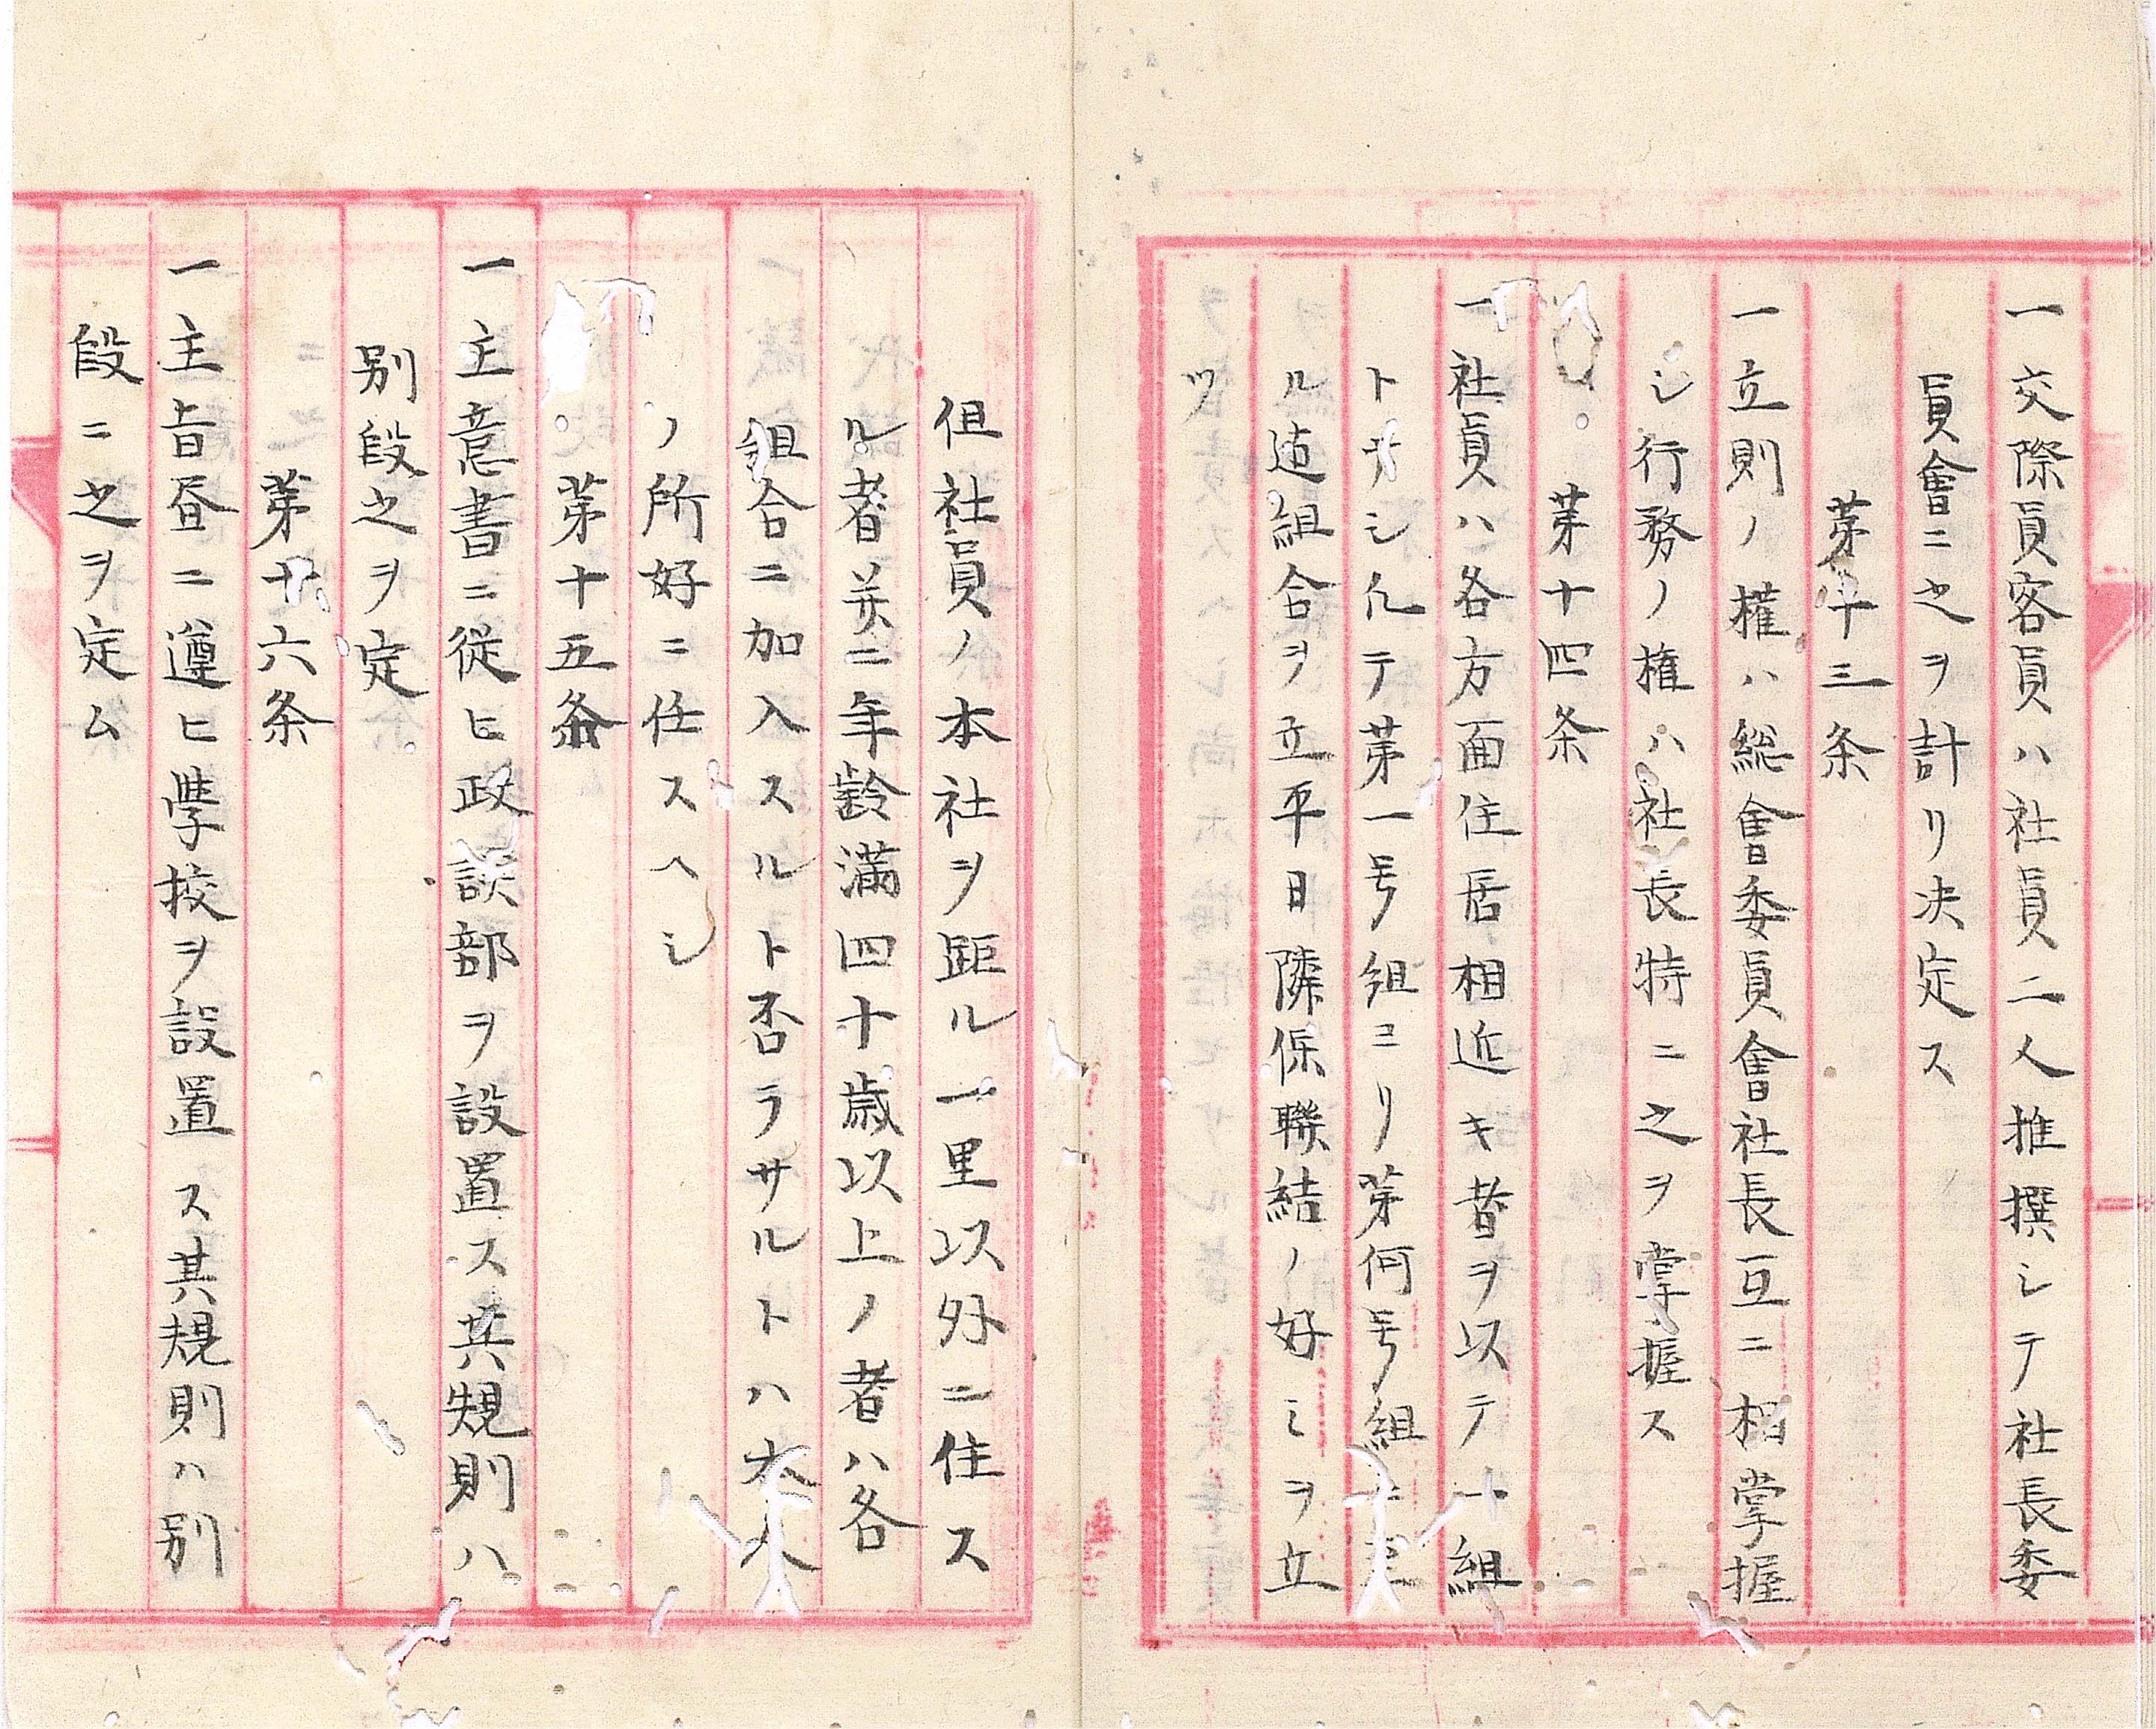 一交際員客員ハ社員二人推撰シテ社長委
員會ニ之ヲ計リ决定ス
第十三条
一立則ノ權ハ総會委員會社長互ニ相掌握
シ行務ノ権ハ社長特ニ之ヲ掌握ス
第十四条
一社員ハ各方面住居相近キ者ヲ以テ一組
トナシ凡テ第一号組ヨリ第何号組ニ至
ル迠組合ヲ立平日隣保聯結ノ好ミヲ立
ツ
但社員ノ本社ヲ距ル一里以外ニ住ス
ル者并ニ年齢満四十歳以上ノ者ハ各
組合ニ加入スルト否ラサルトハ本人
ノ所好ニ任スヘシ
第十五条
一主意書ニ従ヒ政談部ヲ設置ス其規則ハ
別段之ヲ定
第十六条
一主旨昼ニ遵ヒ學校ヲ設置ス其規則ハ別
段ニ之ヲ定ム